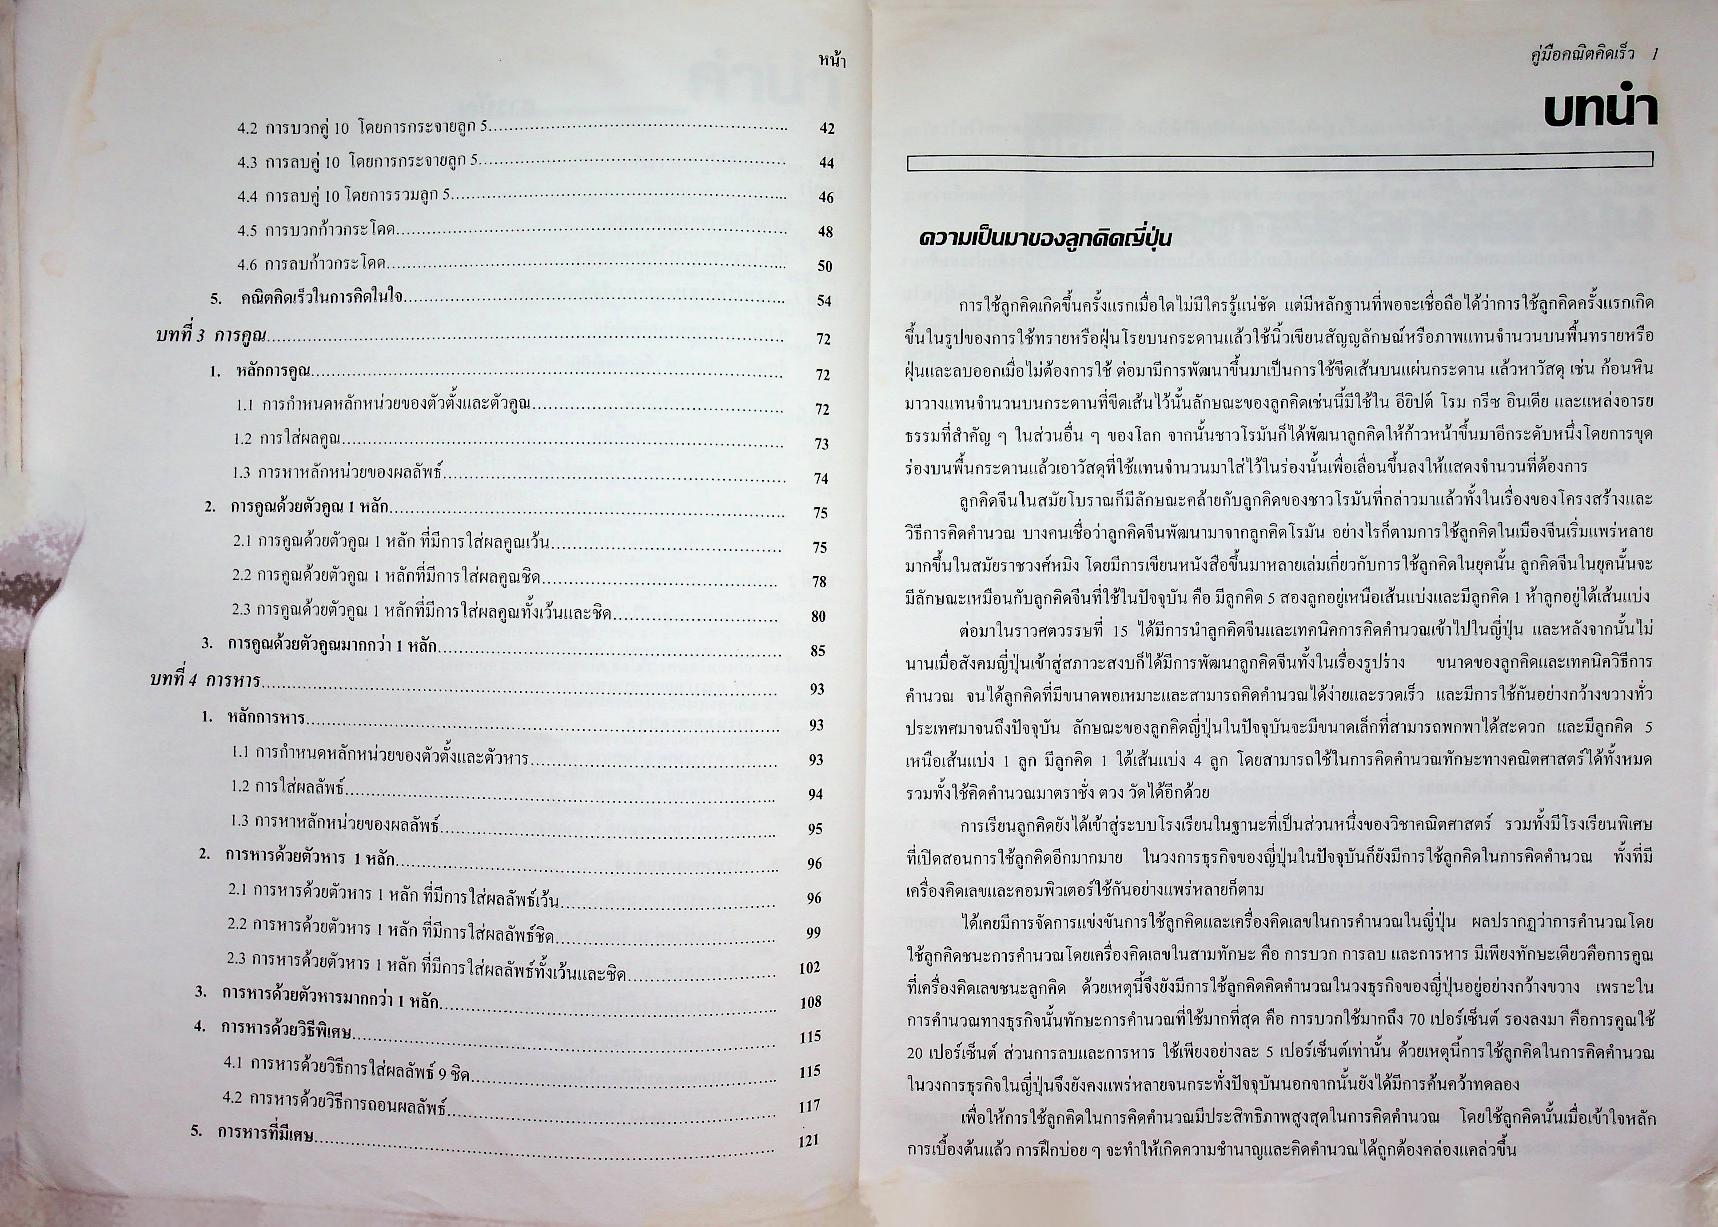 หน้า
4.2 การบวกคู่ 10 โดยการกระจายลูก 5 42
4.3 การลบคู่ 10 โดยการกระจายลูก 5 44
4.4 การลบคู่ 10 โดยการรวมลูก 5 46
4.5 การบวกก้าวกระโดด 48
4.6 การลบก้าวกระโดด 50
5. คณิตคิดเร็วในการคิดในใจ 54
บทที่ 3 การคูณ 72
1. หลักการคูณ 72
1.1 การกำหนดหลักหน่วยของตัวตั้งและตัวคูณ 72
1.2 การใส่ผลคูณ 73
1.3 การหาหลักหน่วยของผลลัพธ์ 74
2. การคูณด้วยตัวคูณ 1 หลัก 75
2.1 การคูณด้วยตัวคูณ 1 หลัก ที่มีการใส่ผลคูณเว้น 75
2.2 การคูณด้วยตัวคูณ 1 หลักที่มีการใส่ผลคูณชิด 78
2.3 การคูณด้วยตัวคูณ 1 หลักที่มีการใส่ผลคูณทั้งเว้นและชิด 80
3. การคูณด้วยตัวคูณมากกว่า 1 หลัก 85
บทที่ 4 การหาร 93
1. หลักการหาร 93
1.1 การกำหนดหลักหน่วยของตัวตั้งและตัวหาร 93
1.2 การใส่ผลลัพธ์ 94
1.3 การหาหลักหน่วยของผลลัพธ์ 95
2. การหารด้วยตัวหาร 1 หลัก 96
2.1 การหารด้วยตัวหาร 1 หลัก ที่มีการใส่ผลลัพธ์เว้น 96
2.2 การหารด้วยตัวหาร 1 หลัก ที่มีการใส่ผลลัพธ์ชิด 99
2.3 การหารด้วยตัวหาร 1 หลัก ที่มีการใส่ผลลัพธ์ทั้งเว้นและชิด 102
3. การหารด้วยตัวหารมากกว่า 1 หลัก 108
4. การหารด้วยวิธีพิเศษ 115
4.1 การหารด้วยวิธีการใส่ผลลัพธ์ 9 ชิด 115
4.2 การหารด้วยวิธีการถอนผลลัพธ์ 117
5. การหารที่มีเศษ 121
คู่มือคณิตคิดเร็ว 1
บทนำ
ความเป็นมาของลูกคิดญี่ปุ่น
การใช้ลูกคิดเกิดขึ้นครั้งแรกเมื่อใดไม่มีใครรู้แน่ชัด แต่มีหลักฐานที่พอจะเชื่อถือได้ว่าการใช้ลูกคิดครั้งแรกเกิด
ขึ้นในรูปของการใช้ทรายหรือฝุ่นโรยบนกระดานแล้วใช้นิ้วเขียนสัญญลักษณ์หรือภาพแทนจำนวนบนพื้นทรายหรือ
ฝุ่นและลบออกเมื่อไม่ต้องการใช้ ต่อมามีการพัฒนาขึ้นมาเป็นการใช้ขีดเส้นบนแผ่นกระดาน แล้วหาวัสดุ เช่น ก้อนหิน
มาวางแทนจำนวนบนกระดานที่ขีดเส้นไว้นั้นลักษณะของลูกคิดเช่นนี้มีใช้ใน อียิปต์ โรม กรีซ อินเดีย และแหล่งอารย
ธรรมที่สำคัญ ๆ ในส่วนอื่น ๆ ของโลก จากนั้นชาวโรมันก็ได้พัฒนาลูกคิดให้ก้าวหน้าขึ้นมาอีกระดับหนึ่งโดยการขุด
ร่องบนพื้นกระดานแล้วเอาวัสดุที่ใช้แทนจำนวนมาใส่ไว้ในร่องนั้นเพื่อเลื่อนขึ้นลงให้แสดงจำนวนที่ต้องการ
ลูกคิดจีนในสมัยโบราณก็มีลักษณะคล้ายกับลูกคิดของชาวโรมันที่กล่าวมาแล้วทั้งในเรื่องของโครงสร้างและ
วิธีการคิดคำนวณ บางคนเชื่อว่าลูกคิดจีนพัฒนามาจากลูกคิดโรมัน อย่างไรก็ตามการใช้ลูกคิดในเมืองจีนเริ่มแพร่หลาย
มากขึ้นในสมัยราชวงศ์หมิง โดยมีการเขียนหนังสือขึ้นมาหลายเล่มเกี่ยวกับการใช้ลูกคิดในยุคนั้น ลูกคิดจีนในยุคนั้นจะ
มีลักษณะเหมือนกับลูกคิดจีนที่ใช้ในปัจจุบัน คือ มีลูกคิด 5 สองลูกอยู่เหนือเส้นแบ่งและมีลูกคิด 1 ห้าลูกอยู่ใต้เส้นแบ่ง
ต่อมาในราวศตวรรษที่ 15 ได้มีการนำลูกคิดจีนและเทคนิคการคิดคำนวณเข้าไปในญี่ปุ่น และหลังจากนั้นไม่
นานเมื่อสังคมญี่ปุ่นเข้าสู่สภาวะสงบก็ได้มีการพัฒนาลูกคิดจีนทั้งในเรื่องรูปร่าง ขนาดของลูกคิดและเทคนิควิธีการ
คำนวณ จนได้ลูกคิดที่มีขนาดพอเหมาะและสามารถคิดคำนวณได้ง่ายและรวดเร็ว และมีการใช้กันอย่างกว้างขวางทั่ว
ประเทศมาจนถึงปัจจุบัน ลักษณะของลูกคิดญี่ปุ่นในปัจจุบันจะมีขนาดเล็กที่สามารถพกพาได้สะดวก และมีลูกคิด 5
เหนือเส้นแบ่ง 1 ลูก มีลูกคิด 1 ใต้เส้นแบ่ง 4 ลูก โดยสามารถใช้ในการคิดคำนวณทักษะทางคณิตศาสตร์ได้ทั้งหมด
รวมทั้งใช้คิดคำนวณมาตราชั่ง ตวง วัดได้อีกด้วย
การเรียนลูกคิดยังได้เข้าสู่ระบบโรงเรียนในฐานะที่เป็นส่วนหนึ่งของวิชาคณิตศาสตร์ รวมทั้งมีโรงเรียนพิเศษ
ที่เปิดสอนการใช้ลูกคิดอีกมากมาย ในวงการธุรกิจของญี่ปุ่นในปัจจุบันก็ยังมีการใช้ลูกคิดในการคิดคำนวณ ทั้งที่มี
เครื่องคิดเลขและคอมพิวเตอร์ใช้กันอย่างแพร่หลายก็ตาม
ได้เคยมีการจัดการแข่งขันการใช้ลูกคิดและเครื่องคิดเลขในการคำนวณในญี่ปุ่น ผลปรากฏว่าการคำนวณโดย
ใช้ลูกคิดชนะการคำนวณโดยเครื่องคิดเลขในสามทักษะ คือ การบวก การลบ และการหาร มีเพียงทักษะเดียวคือการคูณ
ที่เครื่องคิดเลขชนะลูกคิด ด้วยเหตุนี้จึงยังมีการใช้ลูกคิดคิดคำนวณในวงธุรกิจของญี่ปุ่นอยู่อย่างกว้างขวาง เพราะใน
การคำนวณทางธุรกิจนั้นทักษะการคำนวณที่ใช้มากที่สุด คือ การบวกใช้มากถึง 70 เปอร์เซ็นต์ รองลงมา คือการคูณใช้
20 เปอร์เซ็นต์ ส่วนการลบและการหาร ใช้เพียงอย่างละ 5 เปอร์เซ็นต์เท่านั้น ด้วยเหตุนี้การใช้ลูกคิดในการคิดคำนวณ
ในวงการธุรกิจในญี่ปุ่นจึงยังคงแพร่หลายจนกระทั่งปัจจุบันนอกจากนั้นยังได้มีการค้นคว้าทดลอง
เพื่อให้การใช้ลูกคิดในการคิดคำนวณมีประสิทธิภาพสูงสุดในการคิดคำนวณ โดยใช้ลูกคิดนั้นเมื่อเข้าใจหลัก
การเบื้องต้นแล้ว การฝึกบ่อย ๆ จะทำให้เกิดความชำนาญและคิดคำนวณได้ถูกต้องคล่องแคล่วขึ้น